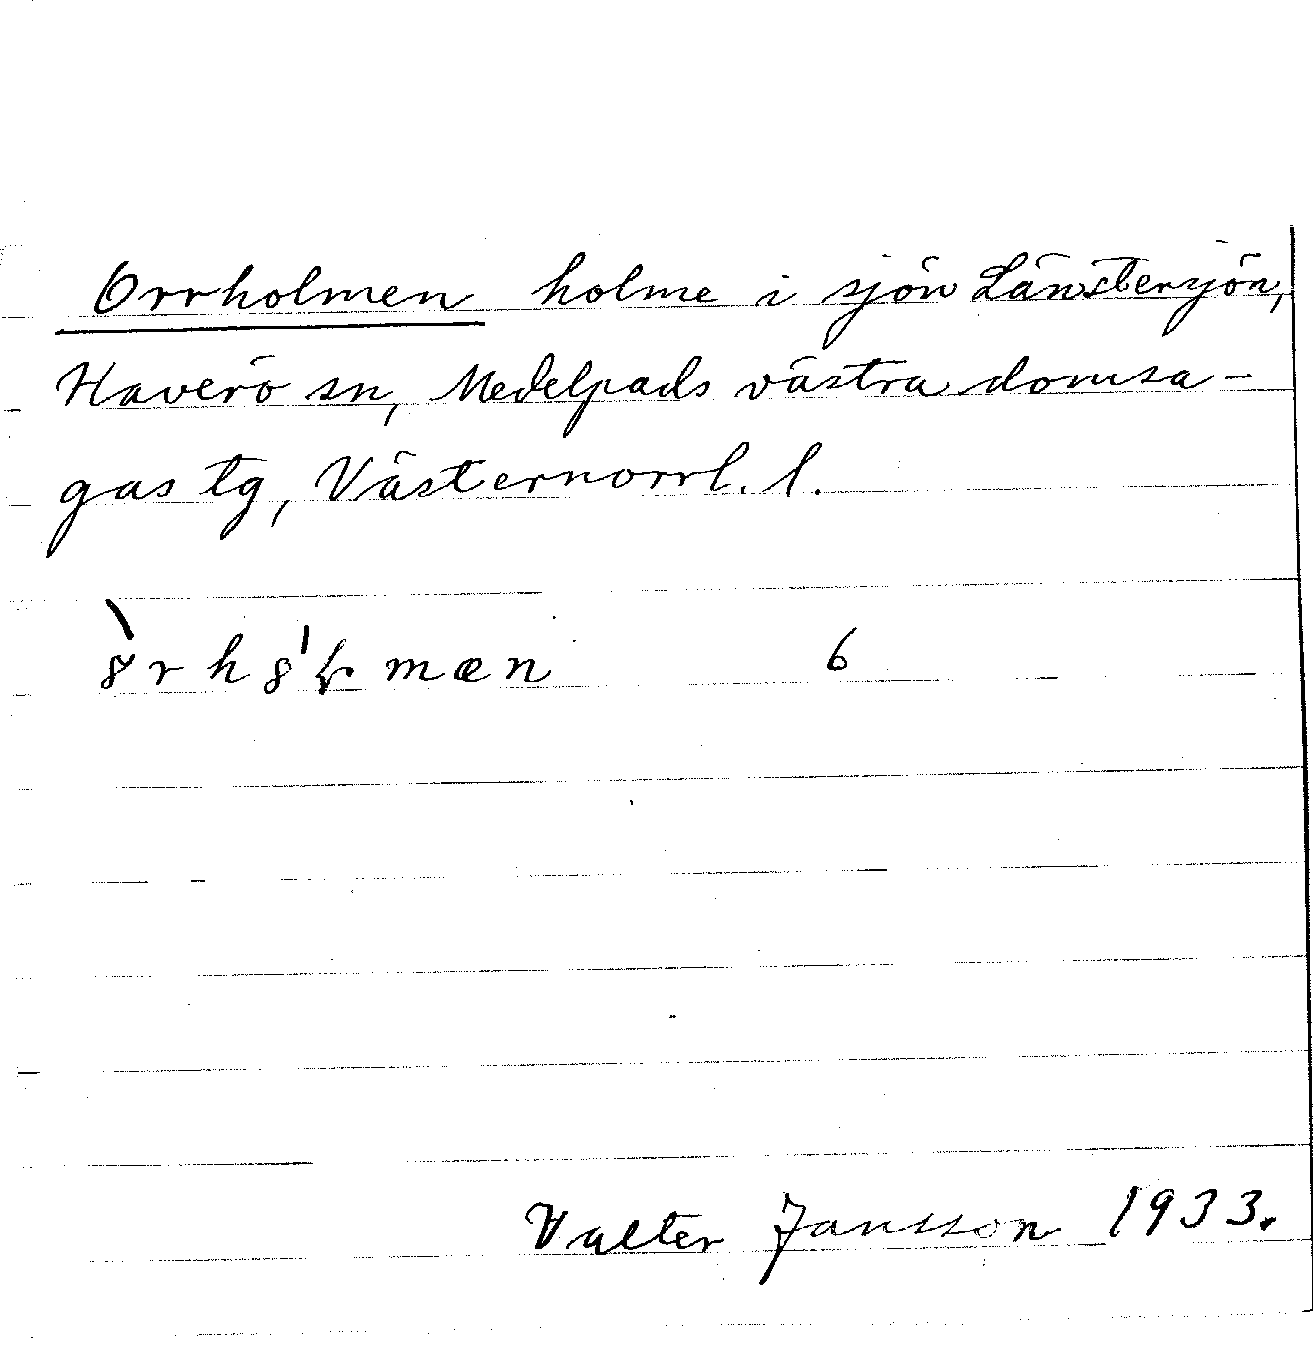 Orrholmen holme i sjön Länstersjön,
Haverö sn, Medelpads västra domsa-
gas tg, Västernorrl. l.
6
Valter Jansson 1933.